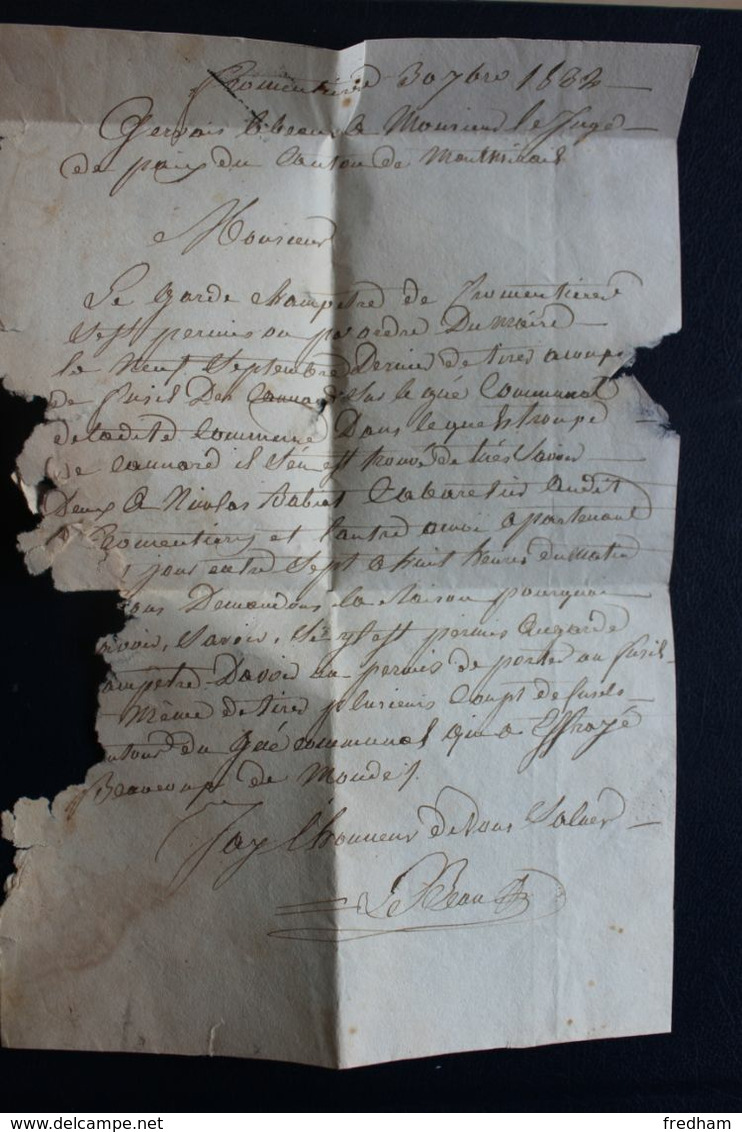 fromentiere 30 7bre 1832
Gervais lebeau a Monsieur le Juge
de paix du Canton de Montmirail
Monsieur
Le garde Champetre de fromentiere
Sest permis ou par ordre Du Maire
le neuf Septembre Dernier de tirer a coups
de fusil Des Cannard Sur le gué Communal
de ladite Commune Dans le quel troupe
de Cannard il S'en est trouvé de tués Savoir
Deux a Nicolas Babiat Cabaretier Audit
fromentiere et l'autre a moi apartenant
jour entre Sept a huit heures du matin
vous Demandons la Raison pourquoi
avoir, Savoir, Si yl est permis au garde
ampetre Davoir un permis de porter un fusil
Même de tirer plusieurs Coups de fusils
autour du Gué communal qui a Effrayé
Beaucoup de Monde
Jay l'honneur de Vous Saluer
LeBeau
fredham